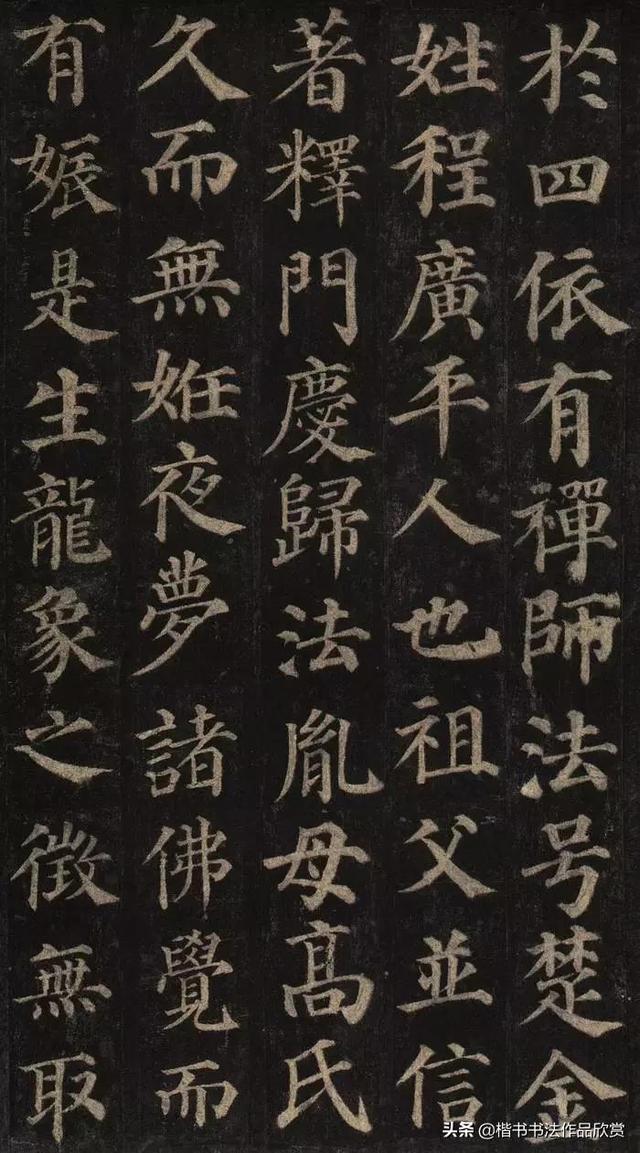 於四依有禪師法号楚金
姓程廣平人也祖父並信
著釋門慶歸法胤母髙氏
久而無姙夜夢諸佛覺而
有娠是生龍象之徵無取
头条@楷书书法作品欣赏